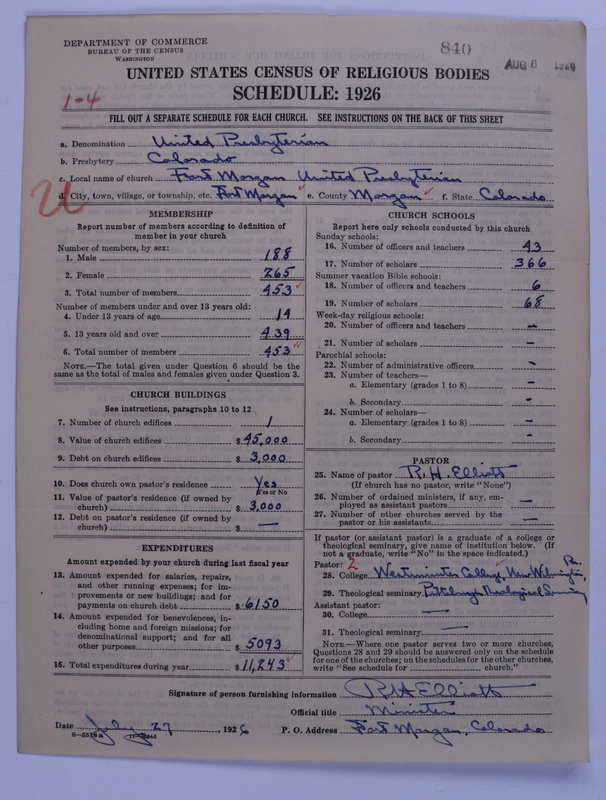 DEPARTMENT OF COMMERCE
BUREAU OF THE CENSUS
WASHINGTON
840
AUG 6 1926
UNITED STATES CENSUS OF RELIGIOUS BODIES
SCHEDULE: 1926
1-4
FILL OUT A SEPARATE SCHEDULE FOR EACH CHURCH. SEE INSTRUCTIONS ON THE BACK OF THIS SHEET
a. Denomination United Presbyterian
b. Presbytery Colorado
c. Local name of church Fort Morgan United Presbyterian
d. City, town, village, or township, etc. Fort Morgan e. County Morgan f. State Colorado
MEMBERSHIP
Report number of members according to definition of
member in your church
Number of members, by sex:
1. Male 188
2. Female 265
3. Total number of members 453
Number of members under and over 13 years old:
4. Under 13 years of age 14
5. 13 years old and over 439
6. Total number of members 453
NOTE.—The total given under Question 6 should be the
same as the total of males and females given under Question 3.
CHURCH BUILDINGS
See instructions, paragraphs 10 to 12
7. Number of church edifices 1
8. Value of church edifices $ 45,000
9. Debt on church edifices $ 3,000
10. Does church own pastor's residence Yes
Yes or No
11. Value of pastor's residence (if owned by
church) $ 3,000
12. Debt on pastor's residence (if owned by
church) $ —
EXPENDITURES
Amount expended by your church during last fiscal year
13. Amount expended for salaries, repairs,
and other running expenses; for im-
provements or new buildings; and for
payments on church debt $ 6150
14. Amount expended for benevolences, in-
cluding home and foreign missions; for
denominational support; and for all
other purposes $ 5093
15. Total expenditures during year $ 11,243
CHURCH SCHOOLS
Report here only schools conducted by this church
Sunday schools:
16. Number of officers and teachers 43
17. Number of scholars 366
Summer vacation Bible schools:
18. Number of officers and teachers 6
19. Number of scholars 68
Week-day religious schools:
20. Number of officers and teachers —
21. Number of scholars —
Parochial schools:
22. Number of administrative officers —
23. Number of teachers—
a. Elementary (grades 1 to 8) —
b. Secondary —
24. Number of scholars—
a. Elementary (grades 1 to 8) —
b. Secondary —
PASTOR
25. Name of pastor R. H. Elliott
(If church has no pastor, write "None")
26. Number of ordained ministers, if any, em-
ployed as assistant pastors —
27. Number of other churches served by the
pastor or his assistants —
If pastor (or assistant pastor) is a graduate of a college or
theological seminary, give name of institution below. (If
not a graduate, write "No" in the space indicated.)
Pastor: 2
28. College Westminster College, New Wilmington, Pa.
29. Theological seminary Pittsburgh Theological Seminary
Assistant pastor:
30. College —
31. Theological seminary —
NOTE.—Where one pastor serves two or more churches,
Questions 28 and 29 should be answered only on the schedule
for one of the churches; on the schedules for the other churches,
write "See schedule for church."
Signature of person furnishing information R. H. Elliott
Official title Minister
Date July 27, 1926 P. O. Address Fort Morgan, Colorado